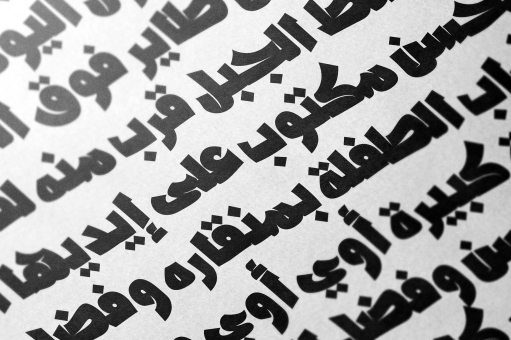 طاير فوق
الحبل قرب منه
حسن مكتوب على إيديها
الطفلة بمنقاره
كبيرة أوي أوي
وفضل